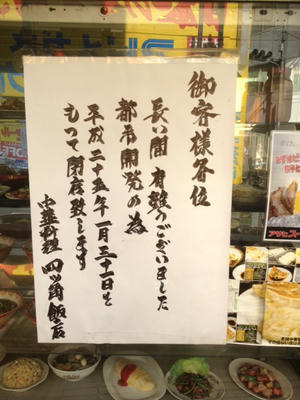 御客様各位
長い間有難うございました
都市開発の為
平成二十五年一月三十一日を
もって閉店致します
中華料理 四ツ角飯店